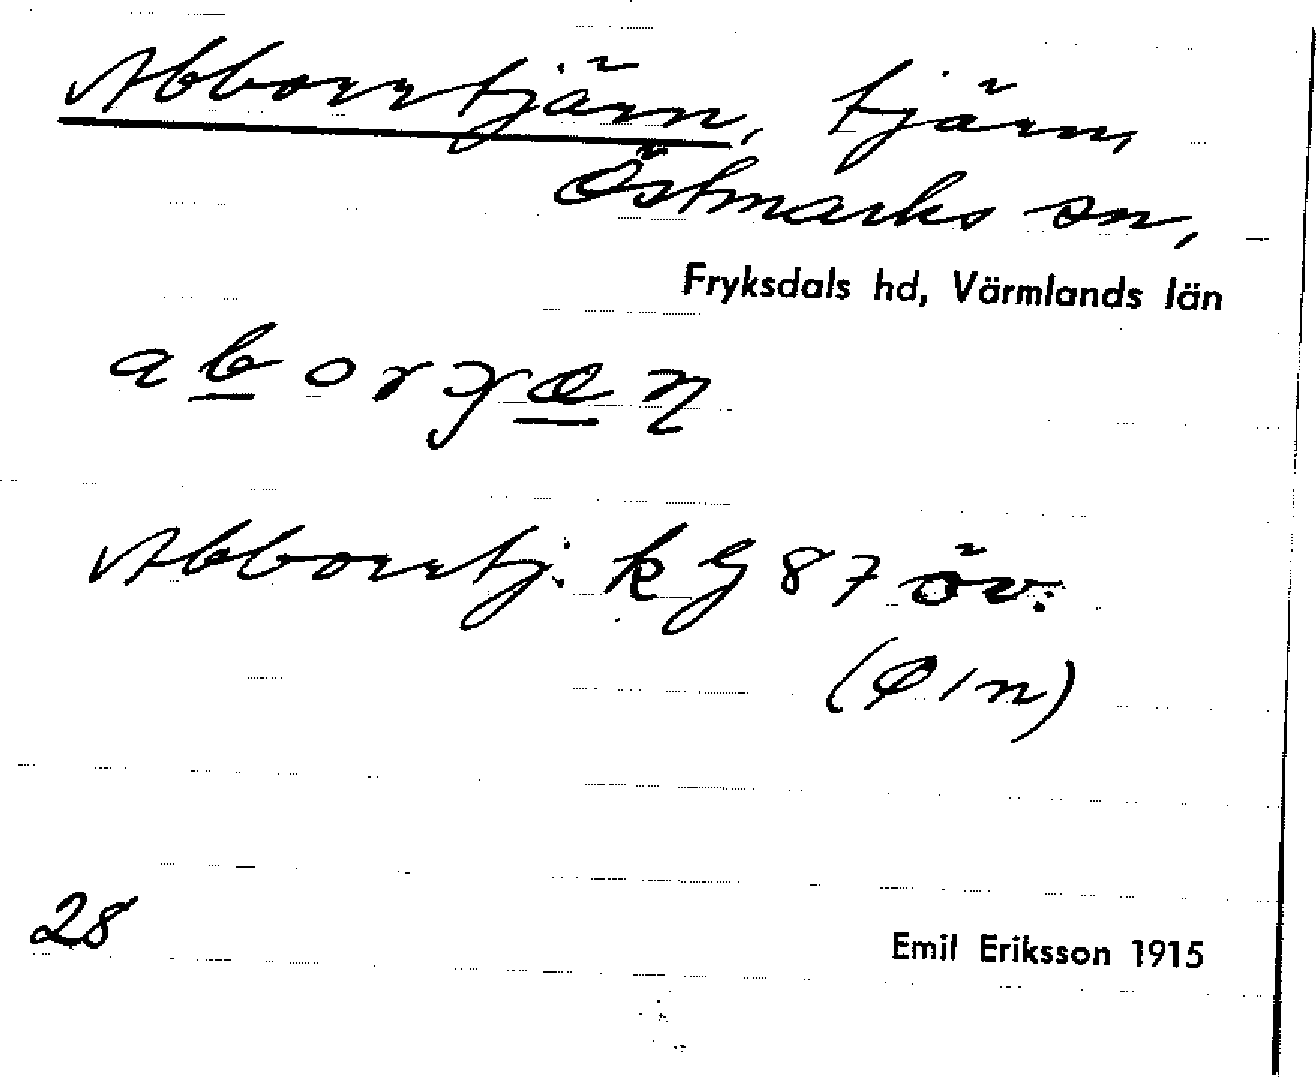 Abborrtjärn, tjärn,
Östmarks sn,
Fryksdals hd, Värmlands län
Abborrtj. k G 87 öv.
28
Emil Eriksson 1915